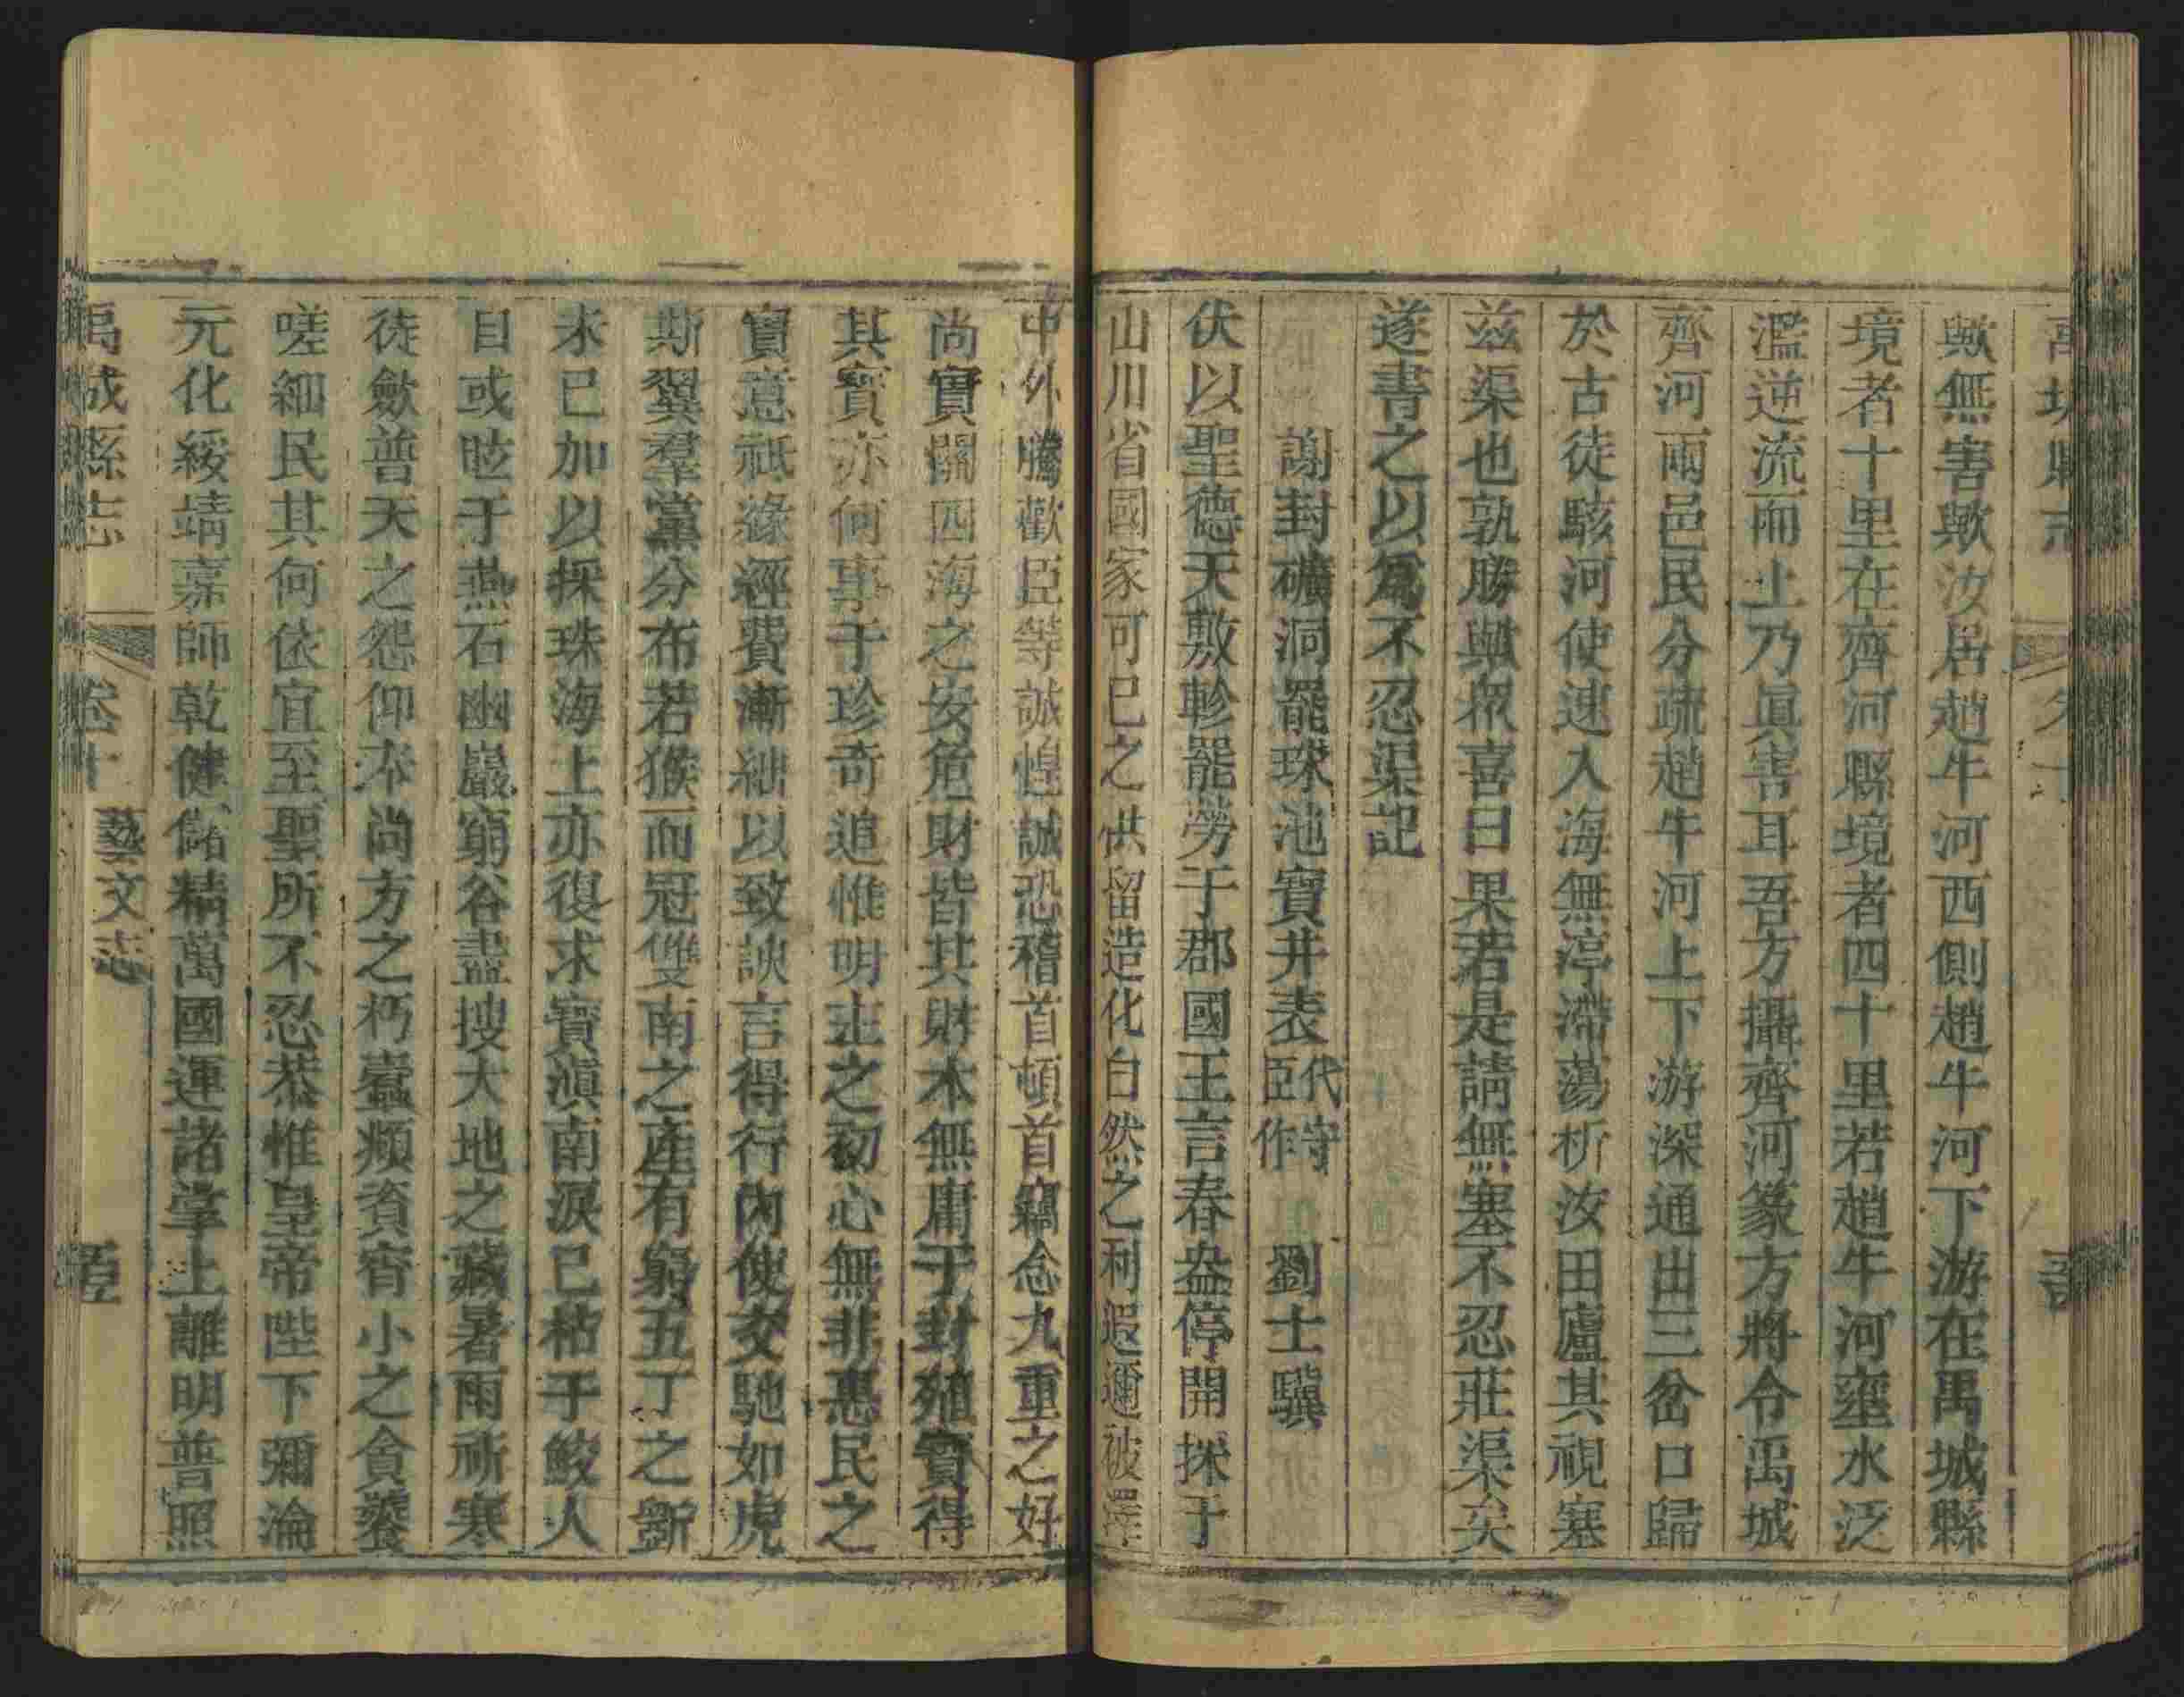 禹城縣志
歟無害歟汝居趙牛河西側趙牛河下游在禹城縣
境者十里在齊河縣境者四十里若趙牛河壅水泛
濫逆流而上乃眞害耳吾方攝齊河篆方將令禹城
齊河兩邑民分疏趙牛河上下游深通出三岔口歸
於古徒駭河使速入海無渟滯蕩析汝田廬其視塞
兹渠也孰勝輿衆喜曰果若是請無塞不忍莊渠矣
遂書之以爲不忍渠記
謝封礦洞罷珠池寶井表代守臣作 劉士驥
伏以聖德天敷軫罷勞于郡國王言春盎停開採于
山川省國家可已之供留造化自然之利遐邇被澤
中外騰歡臣等誠惶誠恐稽首頓首竊念九重之好
尚實關四海之安危財皆其財本無庸于封殖寶得
其寶亦何事于珍奇追惟明主之初心無非惠民之
寶意祇緣經費漸絀以致諛言得行內使交馳如虎
斯翼羣黨分布若猴而冠雙南之產有窮五丁之斵
未已加以採珠海上亦復求寶滇南淚已枯于鮫人
目或眩于燕石幽巖窮谷盡搜大地之藏暑雨祈寒
徒斂普天之怨仰奉尚方之朽蠹頻資宵小之貪饕
嗟細民其何依宜至聖所不忍恭惟皇帝陛下彌淪
元化綏靖嘉師乾健儲精萬國運諸掌上離明普照
禹城縣志 卷十 藝文志